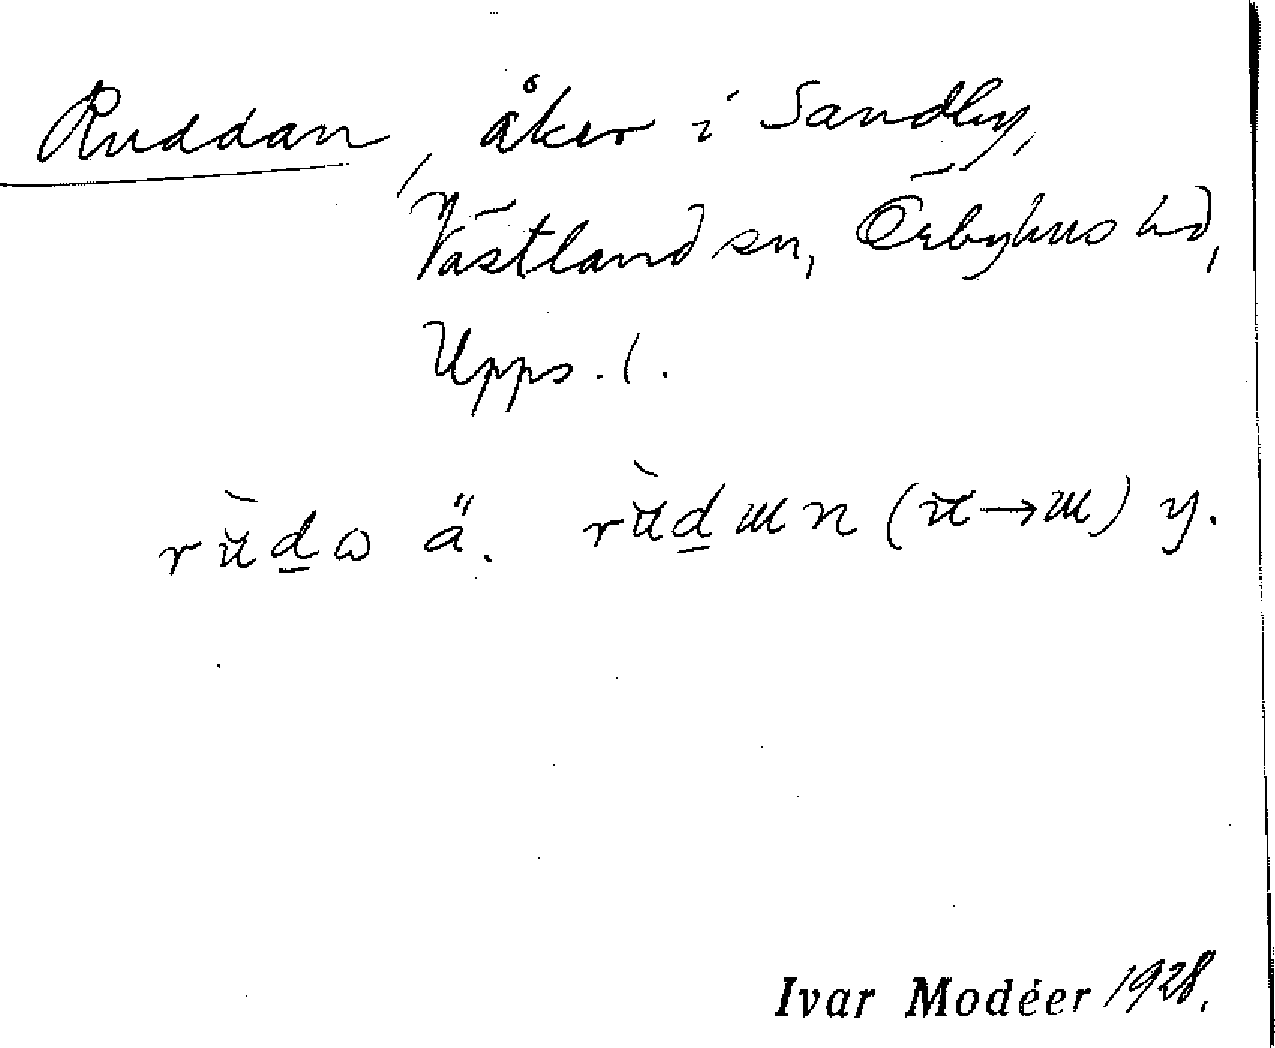 Ruddan, åker i Sandby,
Västland sn, Örbyhus hd,
Upps. l.
ä. y.
Ivar Modéer 1928.